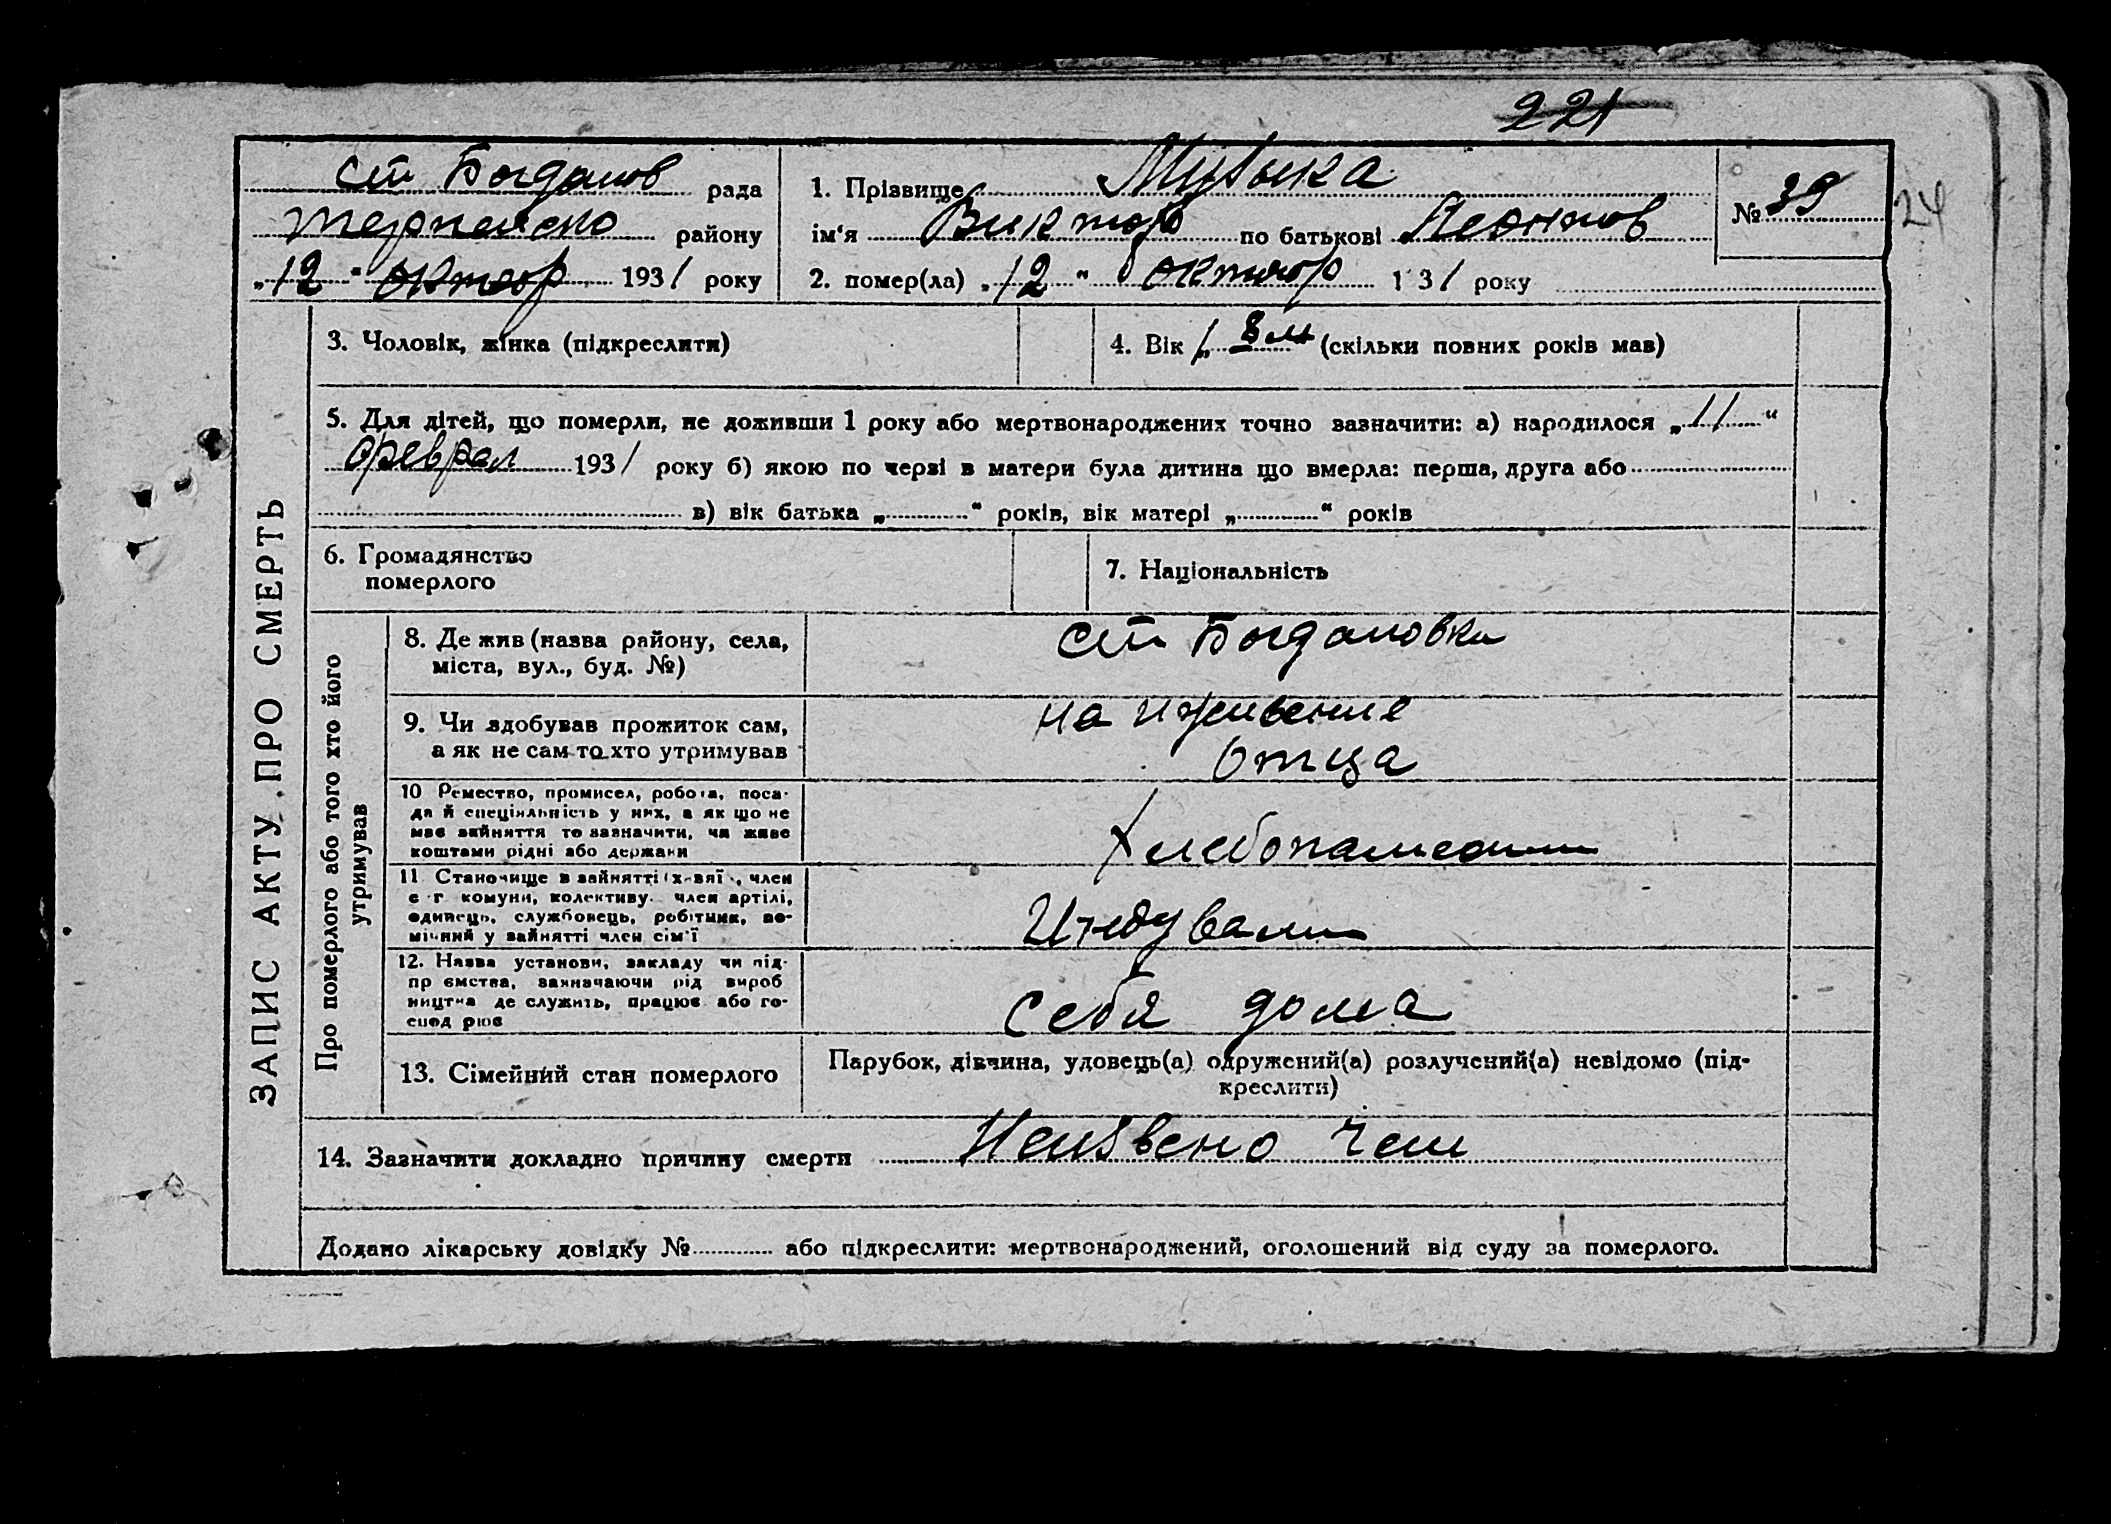 221
ст Богданов рада
района району
„12“ октяор 1931 року
1. Прізвище Музыка
ім‘я Виктор по батькові Леонтов
2. помер(ла) „12“ октяор 1 31 року
№ 39
24
ЗАПИС АКТУ ПРО СМЕРТЬ
3. Чоловік, жінка (підкреслити)
4. Вік „ 8 м (скільки повних років мав)
5. Для дітей, що померли, не доживши 1 року або мертвонароджених точно зазначити: а) народилося „11“
феврал 1931 року б) якою по черзі в матери була дитина що вмерла: перша, друга або
в) вік батька „ “ років, вік матері „ “ років
6. Громадянство
померлого
7. Національність
Про померлого або того хто його
утримував
8. Де жив (назва району, села,
міста, вул., буд. №)
ст Богдановка
9. Чи здобував прожиток сам,
а як не сам то хто утримував
на иживение
отца
10 Ремество, промисел, робота, поса-
да й спеціяльність у них, а як що не
має зайняття то зазначити, чи живе
коштами рідні або держави
11 Становище в зайнятті (х-зяї , член
с г комуни, колективу член артілі,
одинець, службовець, робітник, по-
мічний у зайнятті член сім'ї
12. Назва установи, закладу чи під-
пр ємства, зазначаючи рід вироб
ництва де служить, працює або го-
спод рює
себя дома
13. Сімейний стан померлого
Парубок, дівчина, удовець(а) одружений(а) розлучений(а) невідомо (під-
креслити)
14. Зазначити докладно причину смерти
Додано лікарську довідку № або підкреслити: мертвонароджений, оголошений від суду за померлого.